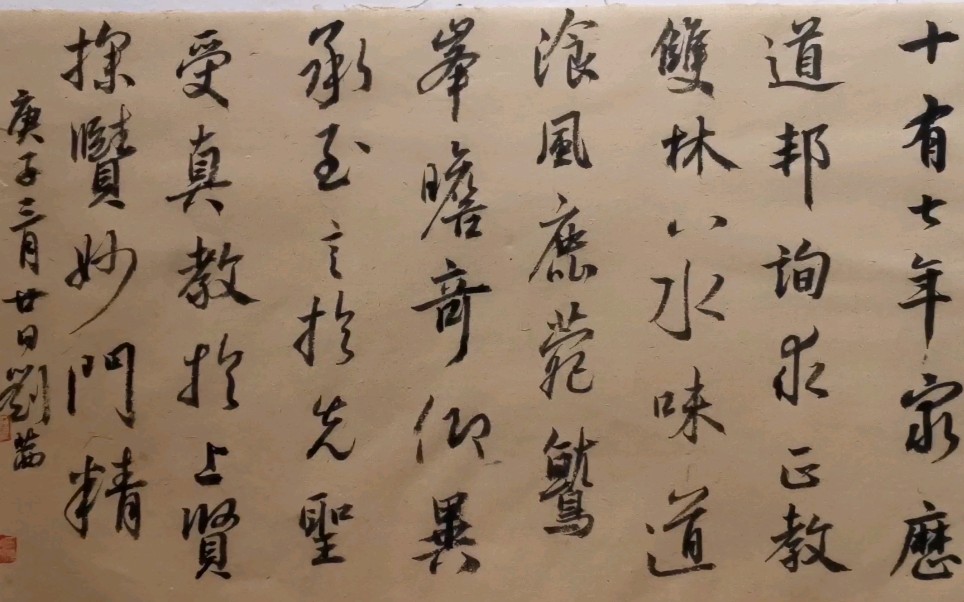 十有七年穷歷
道邦詢求正教
雙林八水味道
飡風鹿菀鷲
峯瞻奇仰異
承至言於先聖
受真教於上賢
探賾妙門精
庚子三月廿日劉茜